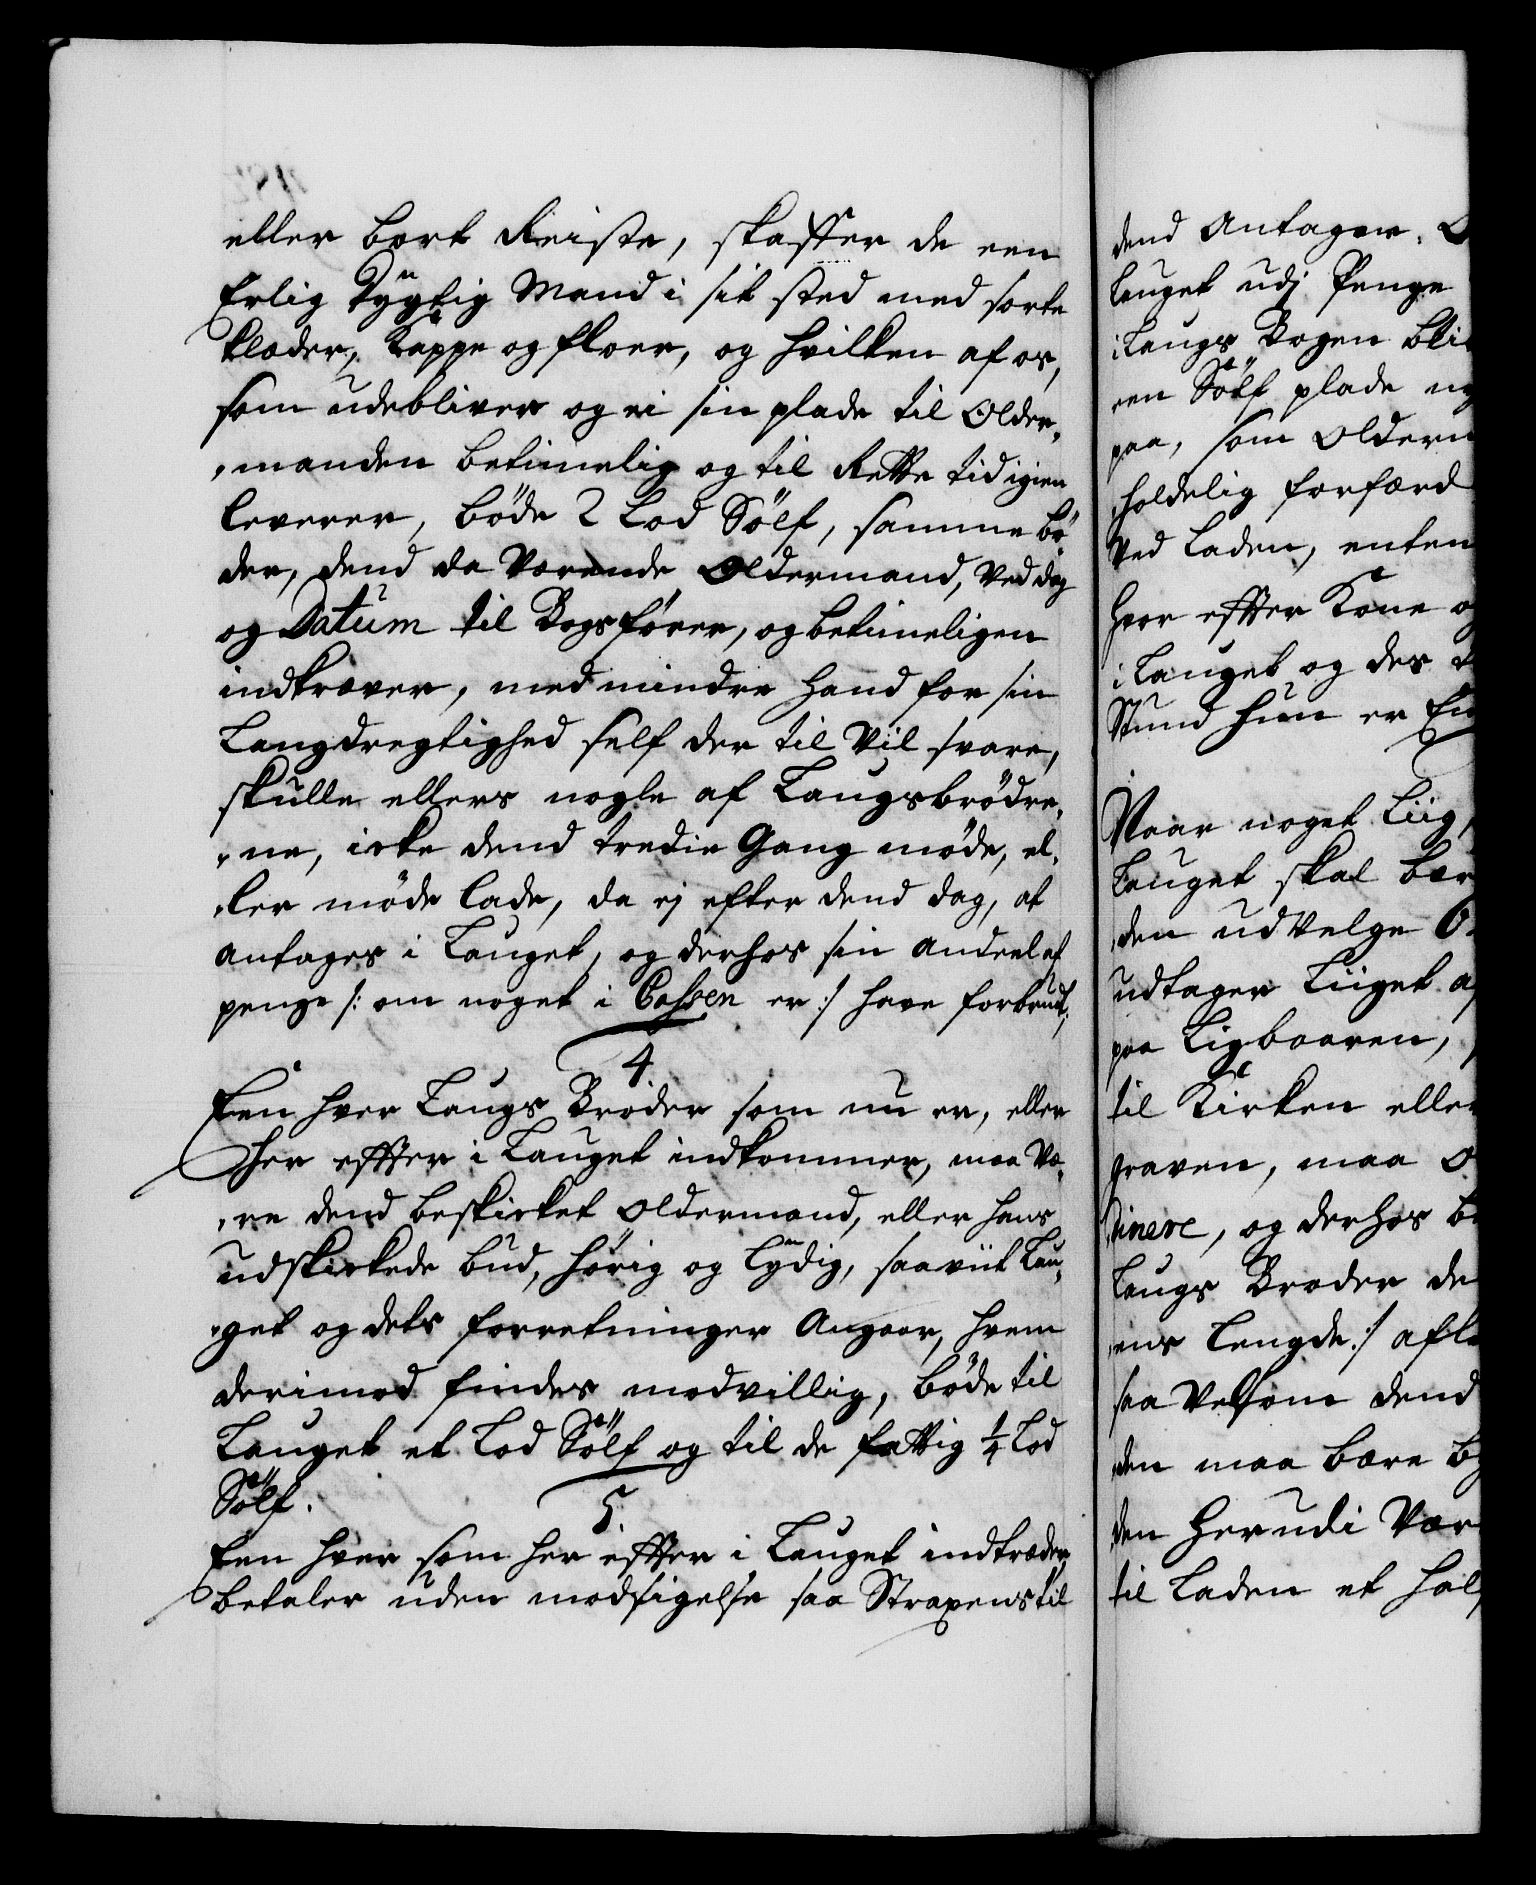 eller bort Reiste, skaffer de een
Erlig Dygtig Mand i sit sted med sorte
klæder, Kappe og floer, og hvilken af os,
som udebliver og ei sin plade til Older,
„manden betimelig og til Rette tid igien
leverer, bøde 2 Lod Sølf, samme bø
der, dend da Værende Oldermand, Ved dag
og Datum til Bogs fører, og betimeligen
indkræver, med mindre hand for sin
Langdregtighed self der til Vil svare,
skulle ellers nogle af Laugsbrødre„
„ne, icke dend tredie Gang møde, el„
„ler møde lade, da ej efter dend dag, at
antages i Lauget, og derhos sin andeel af
penge /: om noget i Cassen er :/ have forbrudt,
4.
Een hver Laugs Broder som nu er, eller
her effter i Lauget indkommer, maa Væ„
„re dend beskicket Oldermand, eller hans
udskickede bud, hørig og Lydig, saaviit Lau„
„get og dets forretninger Angaar, hvem
derimod findes modvillig, bøde til
Lauget et Lod Sølf og til de fattig ¼ Lod
Sølf.
5.
Een hver som her effter i Lauget indtræder
betaler uden modsigelse saa Straxens til
dend Antager.
Lauget udj Penge
i Laugs Bogen
een Sølf plade
paa, som
holdelig
Ved Laden, enten
hvor effter Kone
i Lauget og des
Stund hun er
Naar noget Liig,
Lauget skal
„den udvelge
udtager Liiget
paa Ligbaaren,
til Kirken eller
graven, maa
og derhos
Laugs Broder de
„ens Lengde :/
saa Velsom dend
„den maa bære
den herudi
til Laden et